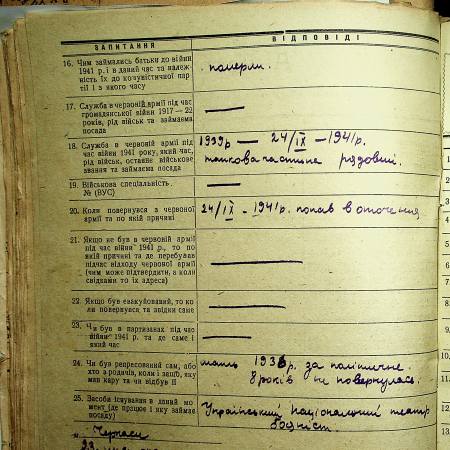 ЗАПИТАННЯ
ВІДПОВІДІ
16. Чим займались батьки до війни
1941 р. і в даний час та належ-
ність їх до комуністичної пар-
тії і з якого часу
померли.
17. Служба в червоній армії під час
громадянської війни 1917 — 22
років, рід військ та займаєма
посада
18. Служба в червоній армії під
час війни 1941 року, який час,
рід військ, останнє військове
звання та займаєма посада
1939р — 24/IX — 1941р.
танкова частина рядовий.
19. Військова спеціальність.
№ (ВУС)
20. Коли повернувся з червоної
армії та по якій причині
24/IX - 1941р. попав в оточення
21. Якщо не був в червоній армії
під час війни 1941 р., то по
якій причині та де перебував
підчас відходу червоної армії
(чим може підтвердити, а коли
свідками то їх адреса)
22. Якщо був евакуйований, то ко-
ли повернувся та звідки саме
23. Чи був в партизанах під час
війни 1941 р. та де саме і
який час
24. Чи був репресований сам, або
хто з родичів, коли і за що, яку
мав кару та чи відбув її
мать 1936р. за політичне.
8 років не повернулась.
25. Засоби існування в даний мо-
мент (де працює і яку займає
посаду)
Український Національний театр
Черкаси
23